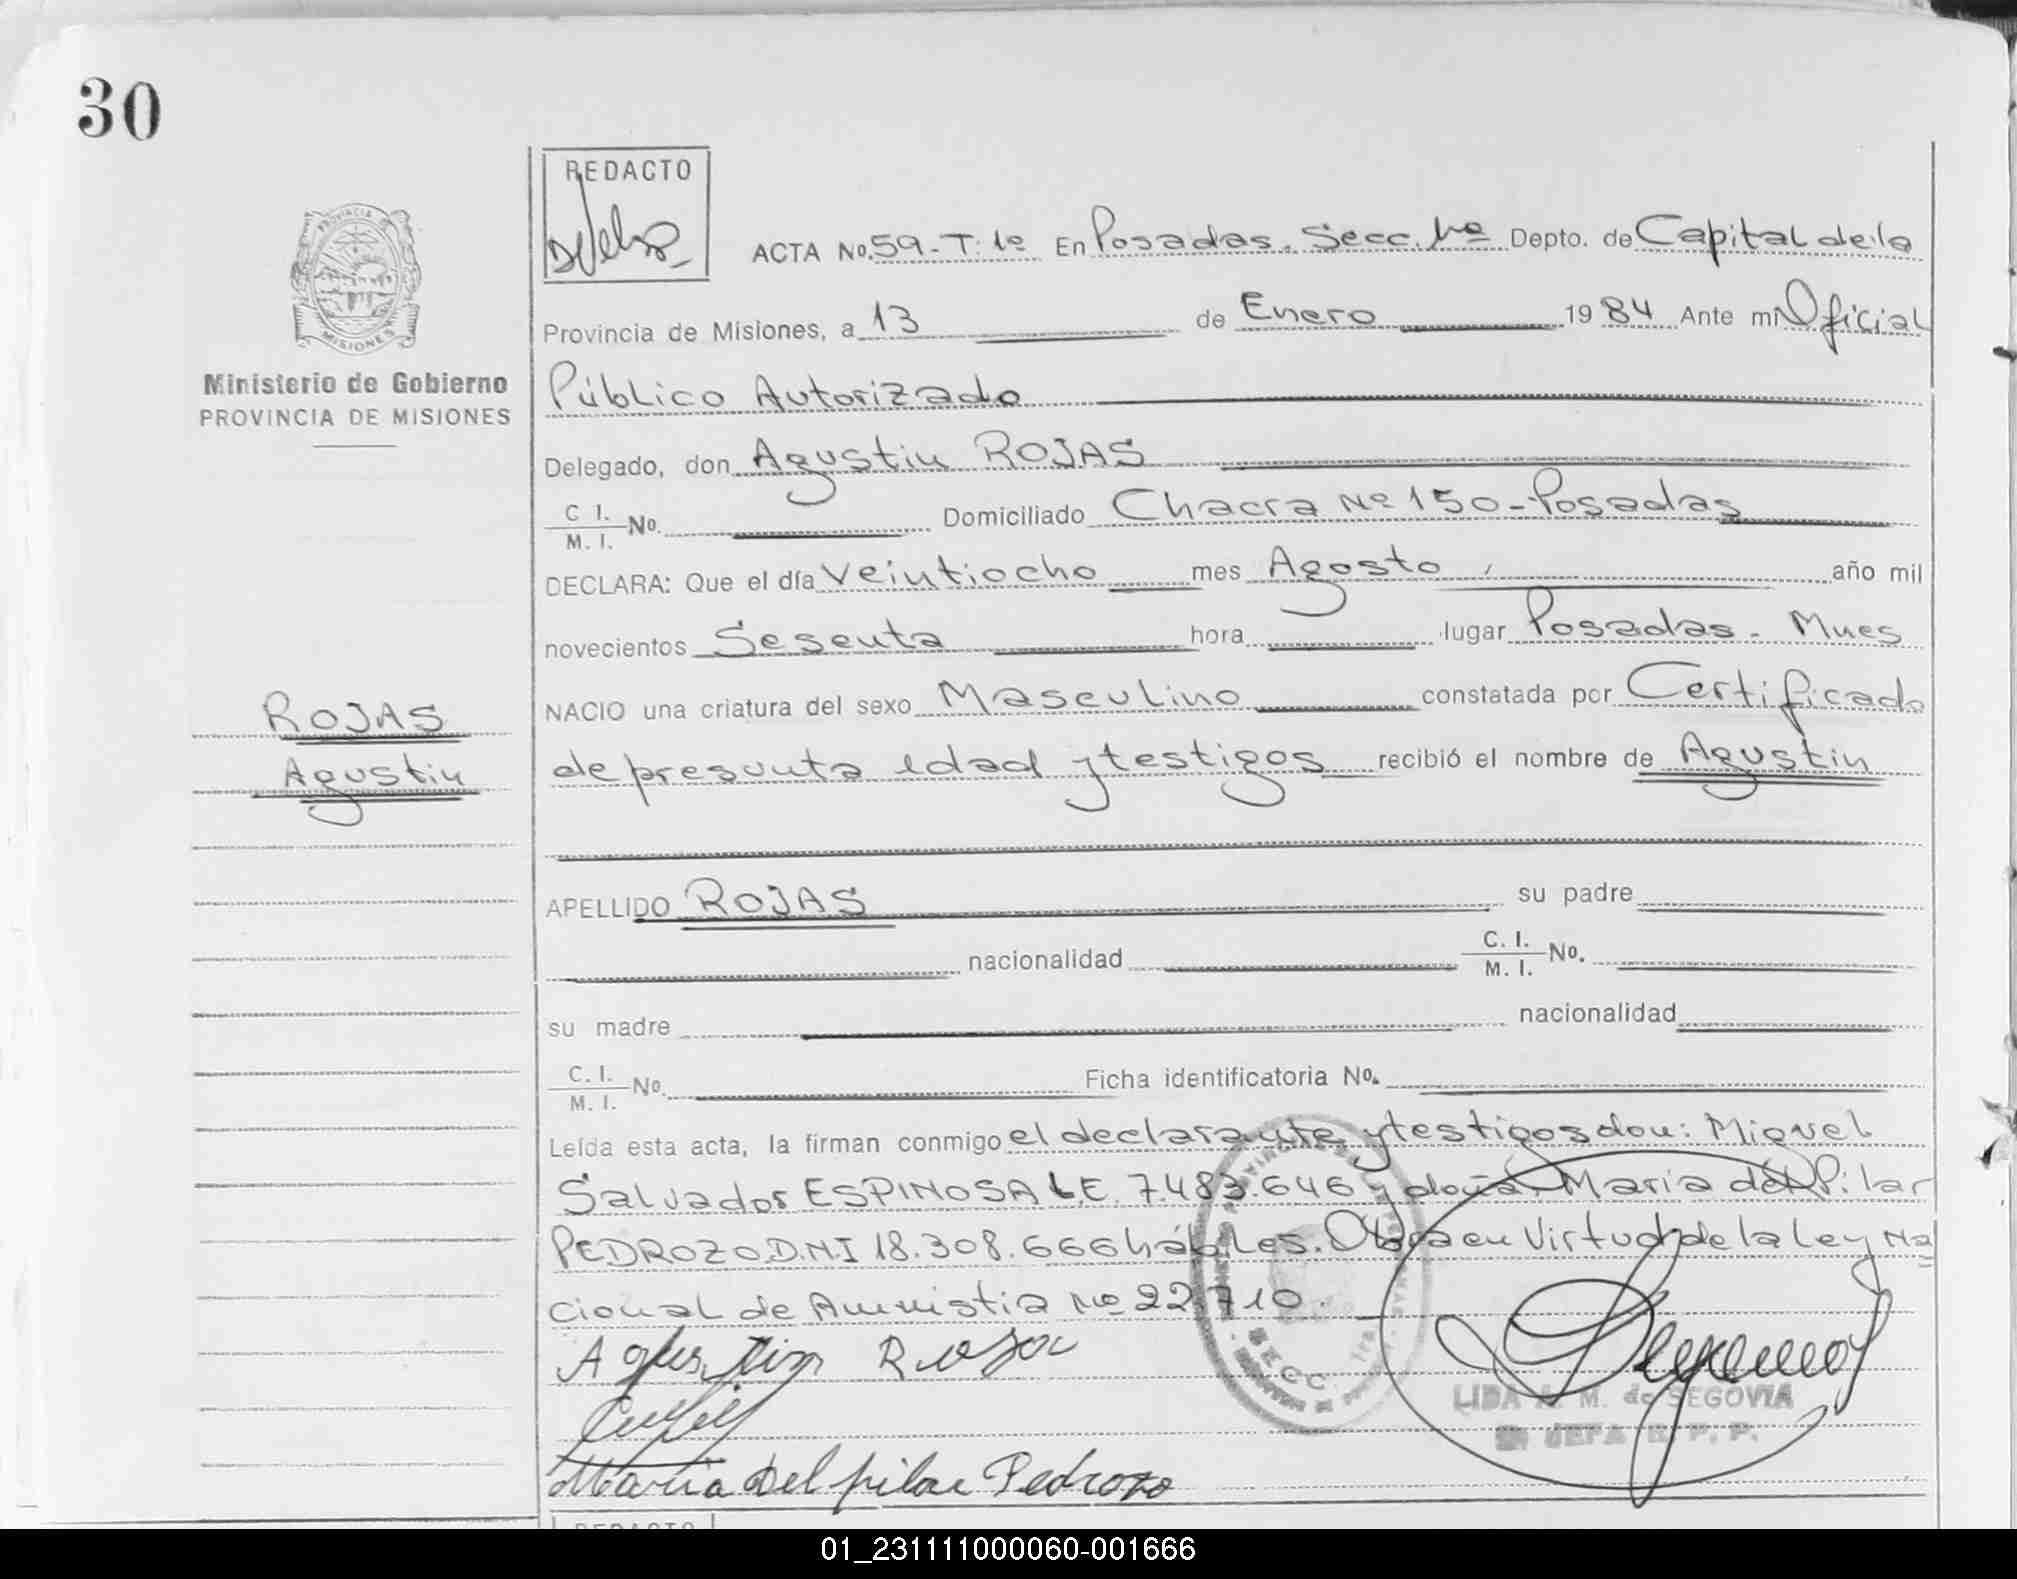 30
REDACTO
PROVINCIA DE
MISIONES
Ministerio de Gobierno
PROVINCIA DE MISIONES
ROJAS
Agustin
ACTA No. 59-T: 1º En Posadas. Secc. 1ª Depto. de Capital de la
Provincia de Misiones, a 13 de Enero 1984 Ante mi Oficial
Público Autorizado
Delegado, don Agustin ROJAS
C I.
M. I. No. Domiciliado Chacra Nº 150-Posadas
DECLARA: Que el día Veintiocho mes Agosto, año mil
novecientos Sesenta hora lugar Posadas. Mnes
NACIO una criatura del sexo Masculino constatada por Certificado
de presunta edad y testigos recibió el nombre de Agustin
APELLIDO ROJAS su padre
nacionalidad C. I.
M. I. No.
su madre nacionalidad
C. I.
M. I. No. Ficha identificatoria No.
Leída esta acta, la firman conmigo el declarante y testigos don: Miguel
Salvador ESPINOSA L.E. 7.483.646 y doña, Maria del Pilar
PEDROZO D.N.I 18.308.666 hábiles. Obra en Virtud de la Ley Na
cional de Amnistia Nº 22.710.
Agustin Rojas
Maria Del pilar Pedrozo
SECC. 1ra
LIDA A. M. de SEGOVIA
JEFA R. P. P.
REDACTO
01_231111000060-001666